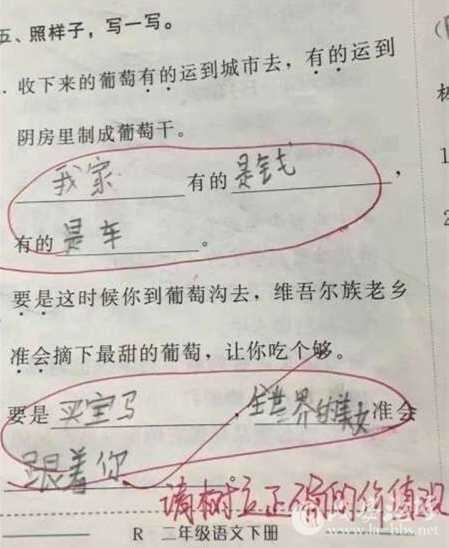 五、照样子，写一写。
收下来的葡萄有的运到城市去，有的运到
阴房里制成葡萄干。
我家有的是钱，
有的是车。
要是这时候你到葡萄沟去，维吾尔族老乡
准会摘下最甜的葡萄，让你吃个够。
要是买宝马，全世界的美女准会
跟着你。
请树立正确的价值观
R 二年级语文下册